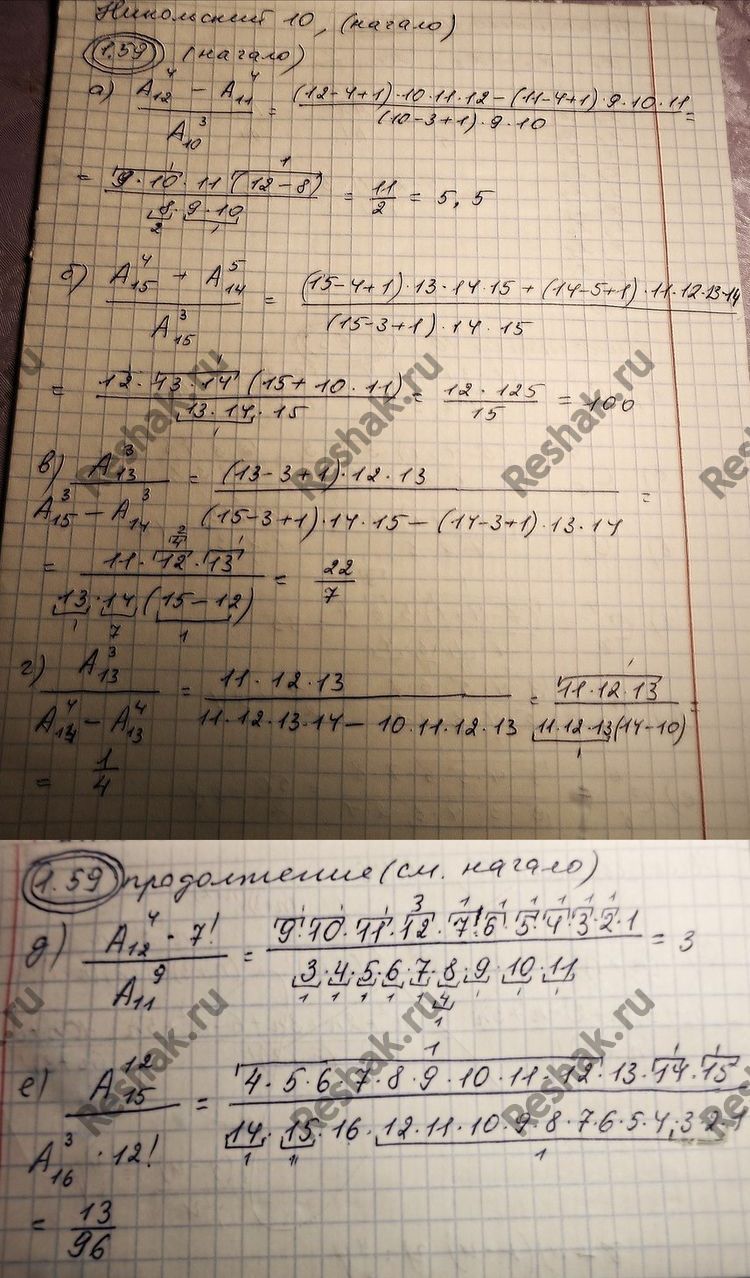 Никольский 10, (начало)
1.59 (начало)
а) (A₁₂⁴ − A₁₁⁴)/A₁₀³ = ((12−4+1)·10·11·12−(11−4+1)·9·10·11)/((10−3+1)·9·10) =
= (9·10·11(12−8))/(8·9·10) = 11/2 = 5,5
б) (A₁₅⁴ + A₁₄⁵)/A₁₅³ = ((15−4+1)·13·14·15+(14−5+1)·11·12·13·14)/((15−3+1)·14·15)
= (12·13·14(15+10·11))/(13·14·15) = (12·125)/15 = 100
в) A₁₃³/(A₁₅³−A₁₄³) = ((13−3+1)·12·13)/((15−3+1)·14·15−(14−3+1)·13·14) =
= (11·12·13)/(13·14(15−12)) = 22/7
г) A₁₃³/(A₁₄⁴−A₁₃⁴) = (11·12·13)/(11·12·13·14−10·11·12·13) = (11·12·13)/(11·12·13(14−10)) =
= 1/4
1.59 продолжение (см. начало)
д) (A₁₂⁴·7!)/A₁₁⁹ = (9·10·11·12·7·6·5·4·3·2·1)/(3·4·5·6·7·8·9·10·11) = 3
е) A₁₅¹²/(A₁₆³·12!) = (4·5·6·7·8·9·10·11·12·13·14·15)/(14·15·16·12·11·10·9·8·7·6·5·4·3·2·1)
= 13/96
Reshak.ru
Reshak.ru
Reshak.ru
Reshak.ru
Reshak.ru